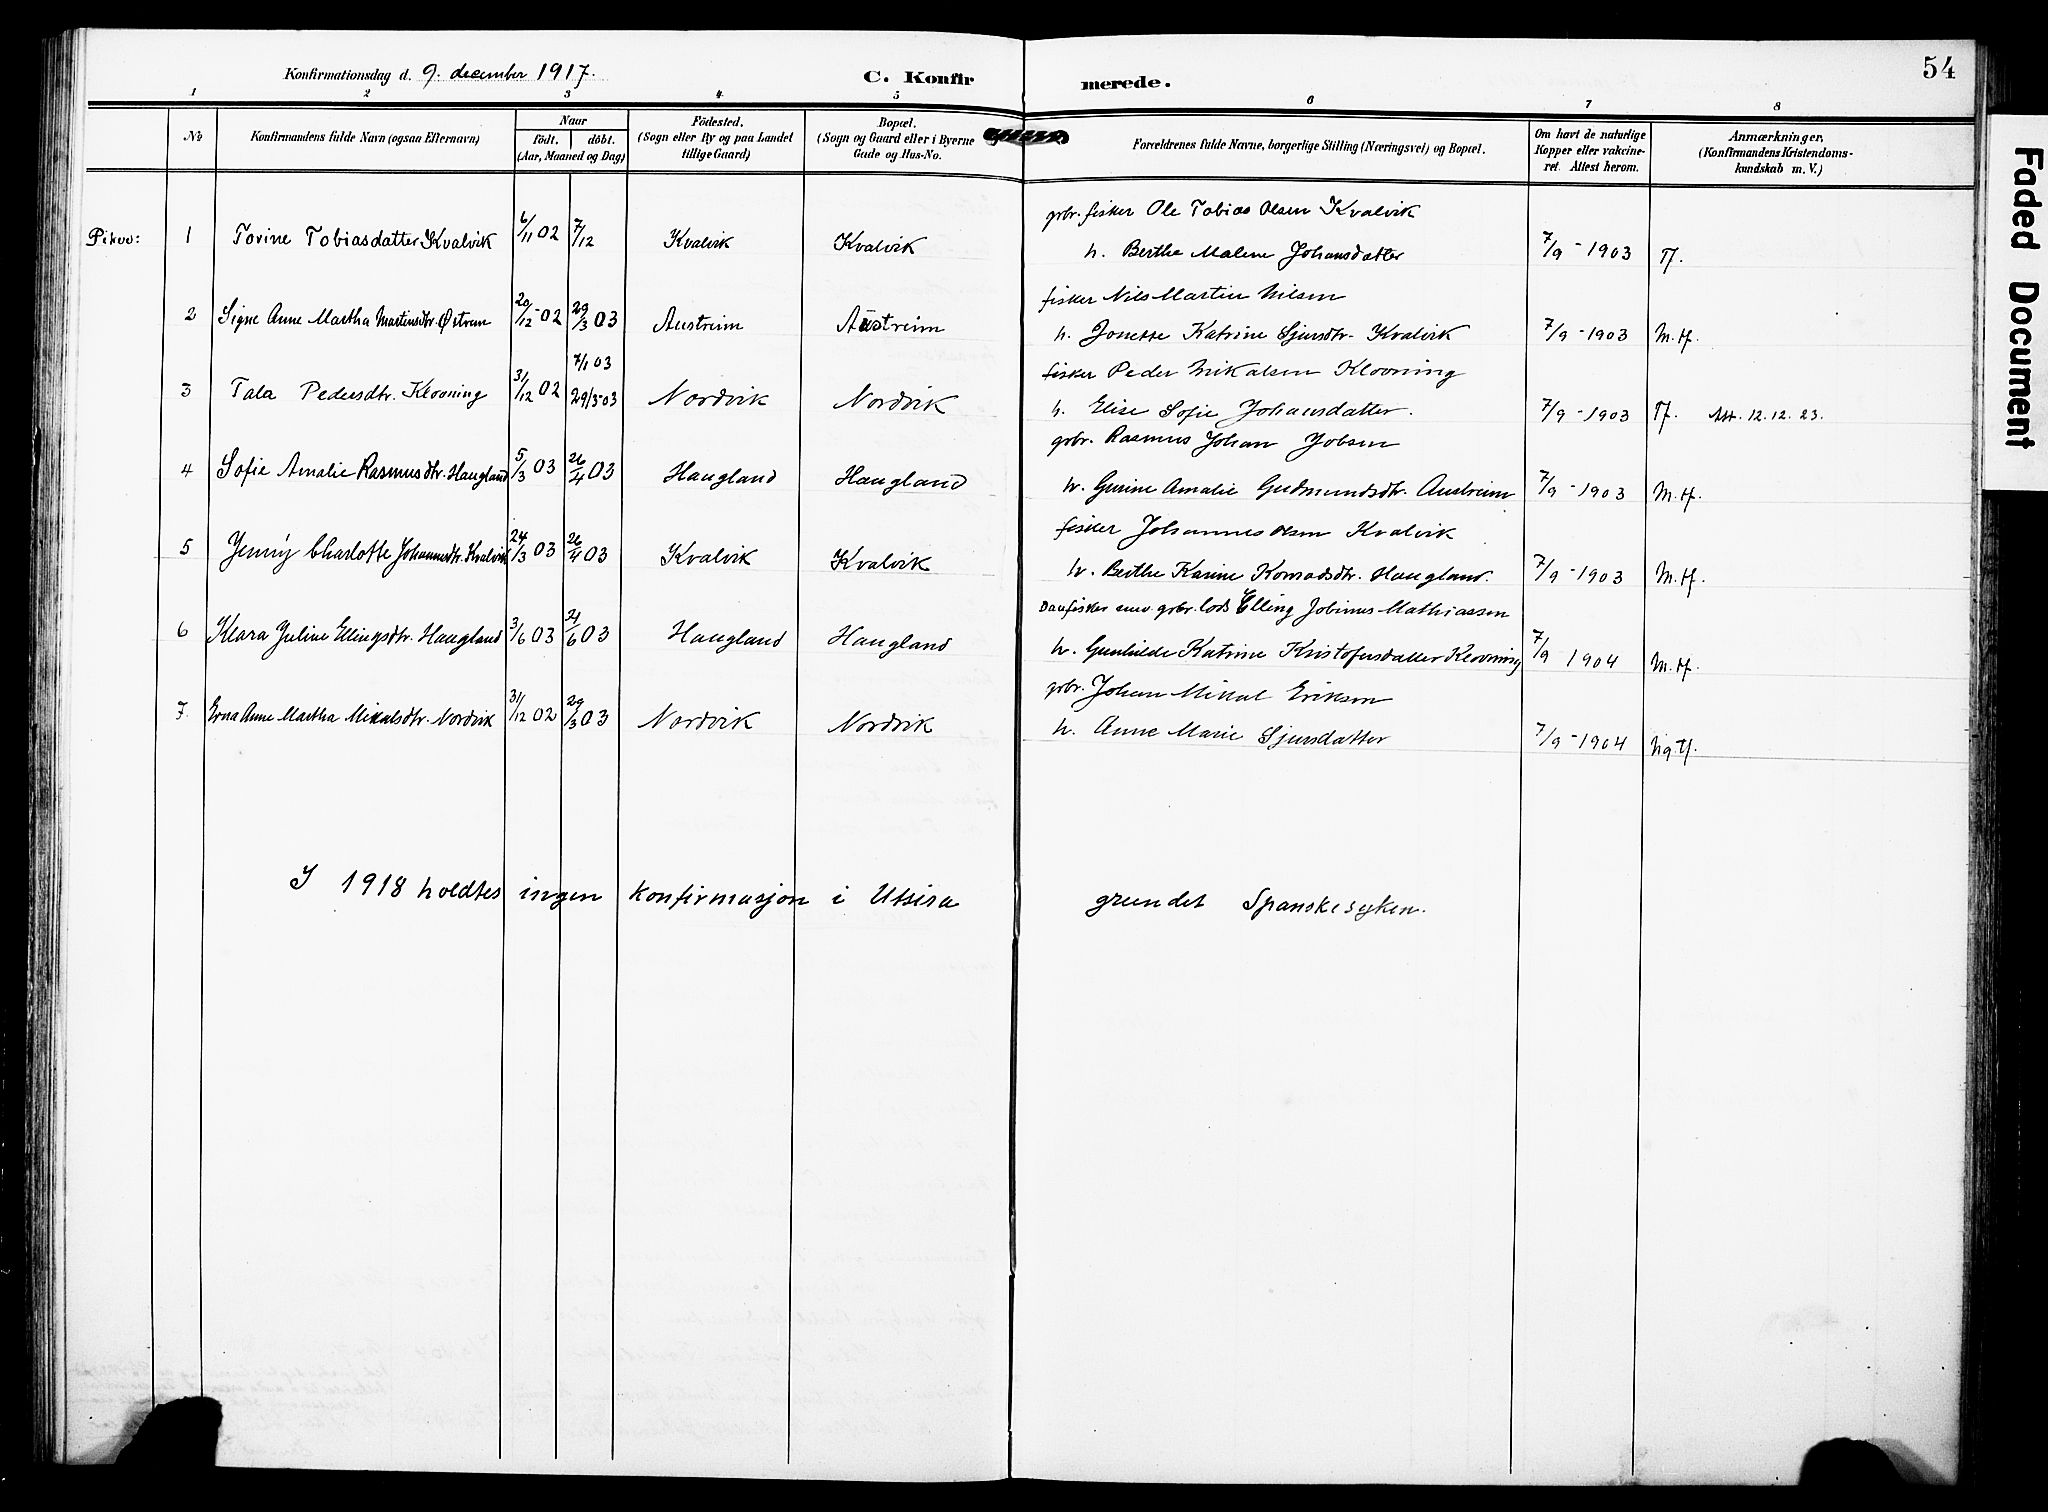 54
Konfirmationsdag d. 9. december 1917.
C. Konfirmerede.
1 2 3 4 5 6 7 8
No
Konfirmandens fulde Navn (ogsaa Efternavn)
Naar
födt. döbt.
(Aar, Maaned og Dag)
Födested.
(Sogn eller By og paa Landet
tillige Gaard)
Bopæl.
(Sogn og Gaard eller i Byerne
Gade og Hus-No.
Forældrenes fulde Navne, borgerlige Stilling (Næringsvei) og Bopæl.
Om havt de naturlige
Kopper eller vakcine-
ret. Attest herom.
Anmærkninger,
(Konfirmandens Kristendoms-
kundskab m. V.)
grbr. fisker Ole Tobias Olsen Kvalvik
Piker: 1 Tovine Tobiasdatter Kvalvik 6/11 02 7/12 Kvalvik Kvalvik h. Berthe Malene Johansdatter 7/9-1903 Tf.
fisker Nils Martin Nilsen
2 Signe Anne Martha Martinsdtr. Østrem 20/12-02 29/3 03 Austreim Austreim h. Jonette Katrine Sjursdtr. Kvalvik 7/9-1903 M.tf.
7/1 03
fisker Peder Mikalsen Klovning
3 Tala Pedersdtr. Klovning 31/12 02 29/5 03 Nordvik Nordvik h. Elise Sofie Johansdatter. 7/9-1903 Tf. Att. 12.12.23.
grbr. Rasmus Johan Jobsen
4 Sofie Amalie Rasmusdtr. Haugland 5/3 03 26/4 03 Haugland Haugland h. Gurine Amalie Gudmundsdtr. Austreim 7/9-1903 M.tf.
fisker Johannes Olsen Kvalvik
5 Jenny Charlotte Johannesdtr. Kvalvik 24/3 03 26/4 03 Kvalvik Kvalvik h. Berthe Karine Konradsdtr. Haugland. 7/9-1903 M.tf.
grbr. lods Elling Jobinus Mathiassen
6 Klara Juline Ellingsdtr. Haugland 3/6 03 21/6 03 Haugland Haugland h. Gunhilde Katrine Kristofersdatter Klovning 7/9 1904 M.tf.
grbr. Johan Mikal Eriksen
7. Erna Anne Martha Mikalsdtr. Nordvik 31/12 02 29/3 03 Nordvik Nordvik h. Anne Marie Sjursdatter 7/9-1904 Ng.tf.
I 1918 holdtes ingen konfirmasjon i Utsira grundet Spanskesyken.
Faded Document